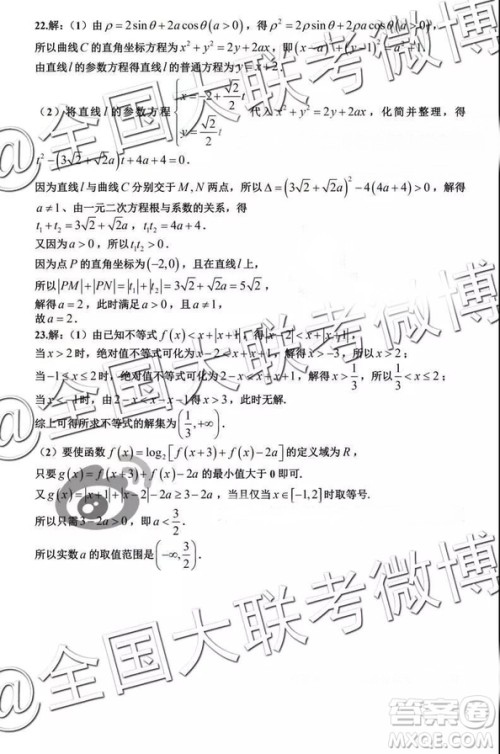 22.解：（1）由ρ=2sinθ+2acosθ(a>0)，得ρ²=2ρsinθ+2aρcosθ(a>0)，
所以曲线C的直角坐标方程为x²+y²=2y+2ax，即(x-a)²+(y-1)²=a²+1，
由直线l的参数方程得直线l的普通方程为y=x+2．
（2）将直线l的参数方程{x=-2+√2/2 t, y=√2/2 t 代入x²+y²=2y+2ax，化简并整理，得
t²-(3√2+√2a)t+4a+4=0．
因为直线l与曲线C分别交于M,N两点，所以Δ=(3√2+√2a)²-4(4a+4)>0，解得
a≠1、由一元二次方程根与系数的关系，得
t₁+t₂=3√2+√2a，t₁t₂=4a+4．
又因为a>0，所以t₁t₂>0．
因为点P的直角坐标为(-2,0)，且在直线l上，
所以|PM|+|PN|=|t₁|+|t₂|=3√2+√2a=5√2，
解得a=2，此时满足a>0，且a≠1，
故a=2．
23.解：（1）由已知不等式f(x)<x+|x+1|，得|x-2|<x+|x+1|，
当x>2时，绝对值不等式可化为x-2<x+x+1，解得x>-3，所以x>2；
当-1≤x≤2时，绝对值不等式可化为2-x<x+x+1，解得x>1/3，所以1/3<x≤2；
当x<-1时，由2-x<x-x-1得x>3，此时无解．
综上可得所求不等式的解集为(1/3,+∞)．
（2）要使函数f(x)=log₂[f(x+3)+f(x)-2a]的定义域为R，
只要g(x)=f(x+3)+f(x)-2a的最小值大于0即可．
又g(x)=|x+1|+|x-2|-2a≥3-2a，当且仅当x∈[-1,2]时取等号．
所以只需3-2a>0，即a<3/2．
所以实数a的取值范围是(-∞,3/2)．
@全国大联考微博
@全国大联考微博
@全国大联考微博
答案圈
MXQE.COM